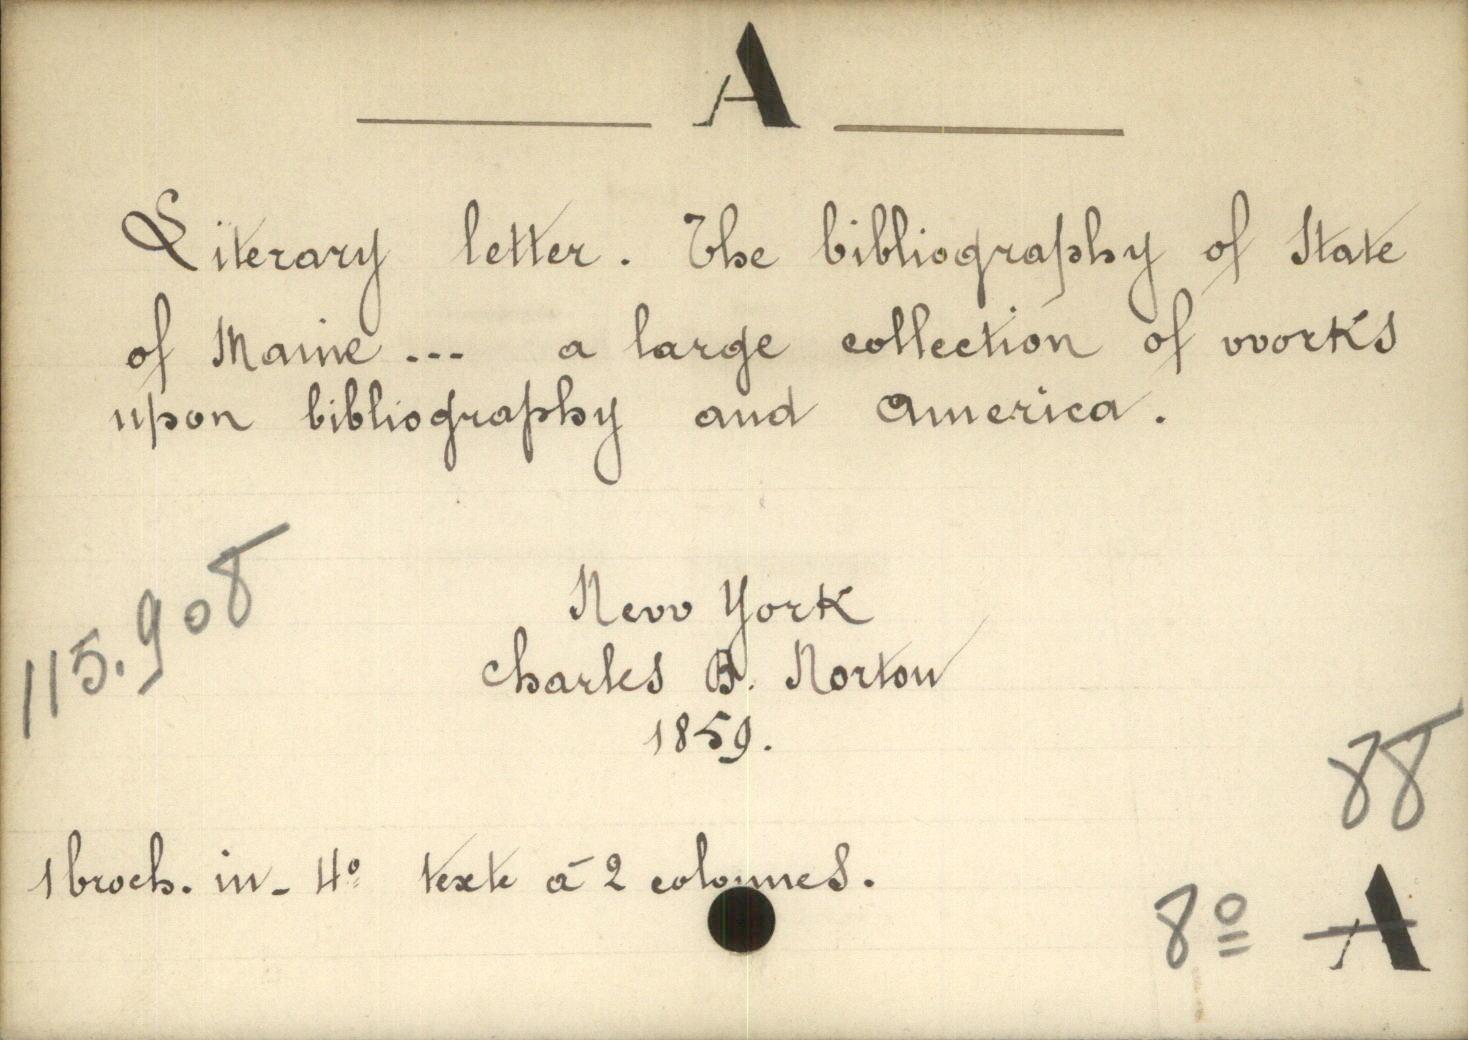 A
Literary letter. The bibliography of State
of Maine ... a large collection of works
upon bibliography and America.
115.908
New York
Charles B. Norton
1859.
88
1 broch. in-4º texte à 2 colonnes.
8º A